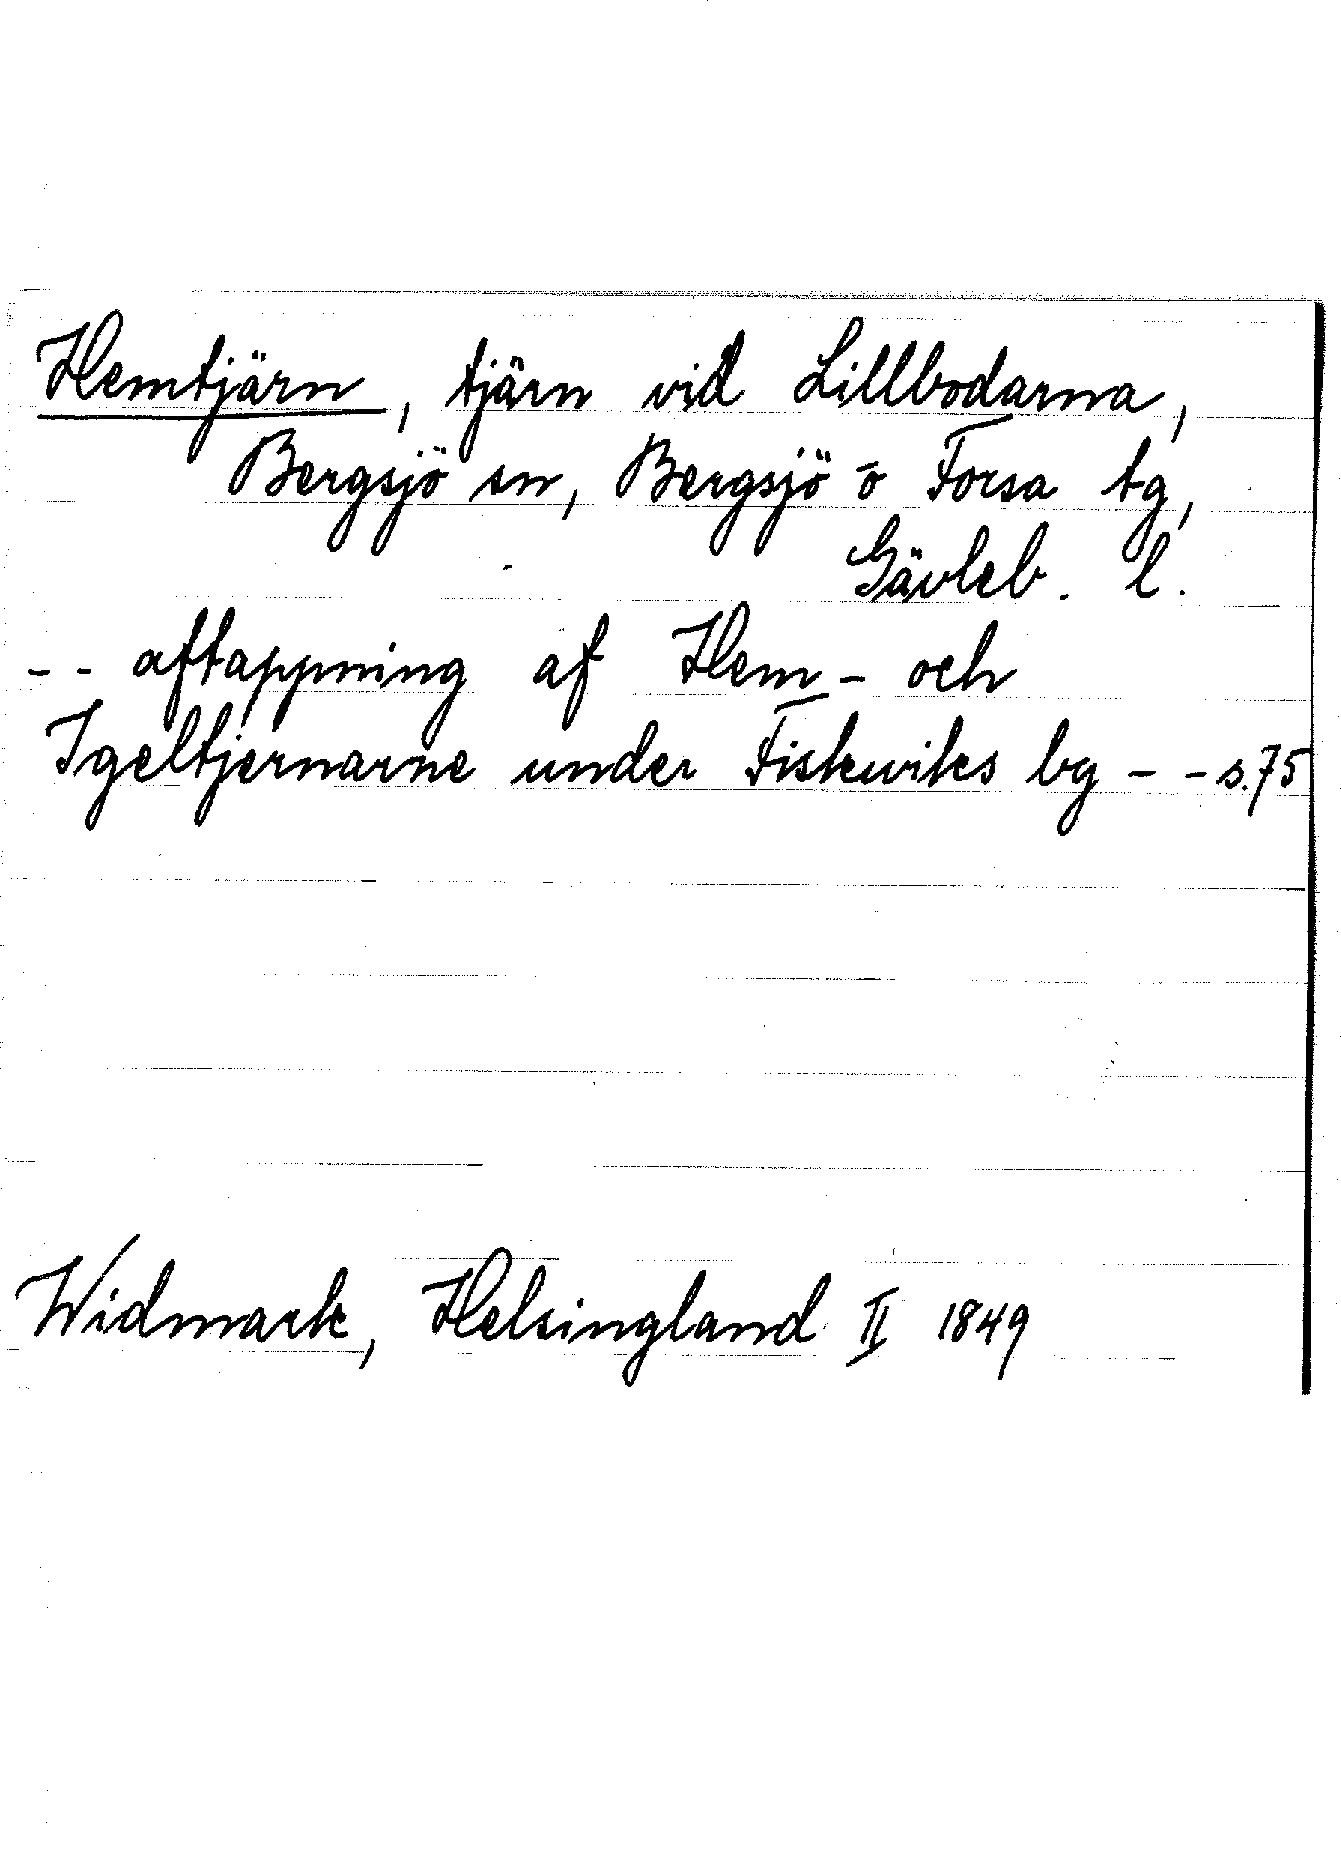 Hemtjärn, tjärn vid Lillbodarna,
Bergsjö sn, Bergsjö o Forsa tg,
Gävleb. l.
-- aftappning af Hem- och
Igeltjernarne under Fiskwiks bg -- s.75
Widmark, Helsingland II 1849